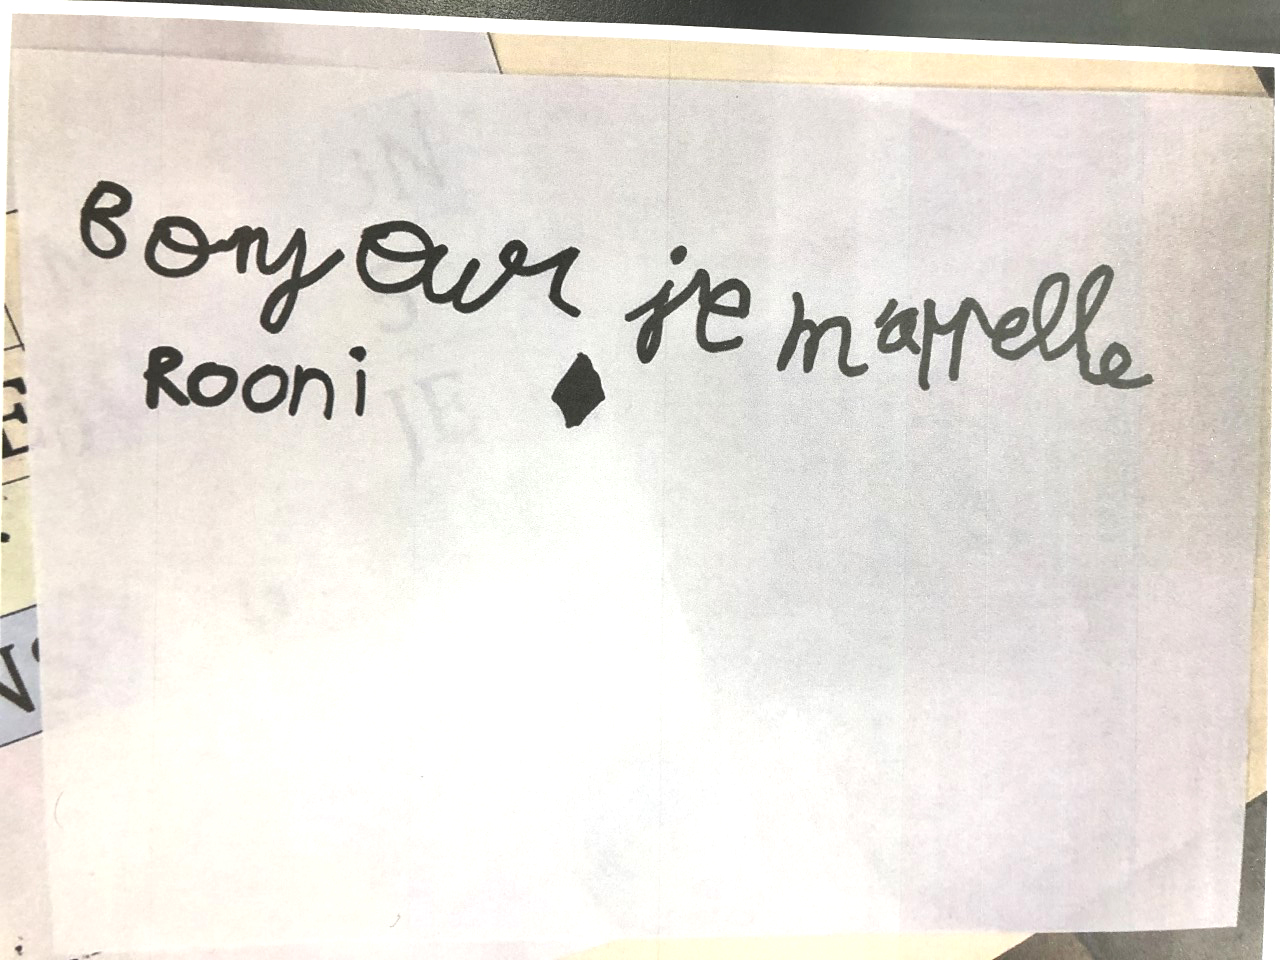 Bonjour je m'appelle
Rooni ♦